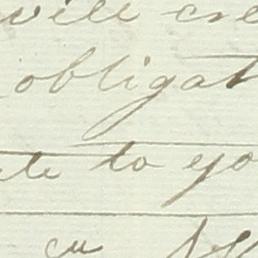 will cre
obligat
te to yo